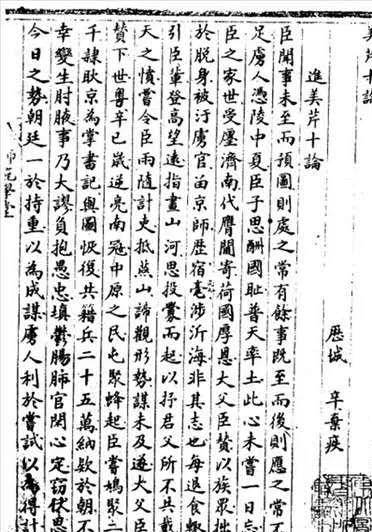 美芹十論
歷城 辛棄疾
進美芹十論
臣聞事未至而預圖則處之常有餘事既至而後則應之常不
足虜人憑陵中夏臣子思酬國恥普天率土此心未嘗一日忘
臣之家世受廛濟南代膺閫寄荷國厚恩大父臣贊以族眾拙
於脫身被汙虜官留京師歷宿亳涉沂海非其志也每退食輒
引臣輩登高望遠指畫山河思投釁而起以紓君父所不共戴
天之憤嘗令臣兩隨計吏抵燕山諦觀形勢謀未及遂大父臣
贊下世粵辛巳歲逆亮南寇中原之民屯聚蜂起臣嘗鳩眾二
千隸耿京為掌書記與圖恢復共籍兵二十五萬納款於朝不
幸變生肘腋事乃大謬負抱愚忠填鬱腸肺官閑心定竊伏思
今日之勢朝廷一於持重以為成謀虜人利於嘗試以為得計